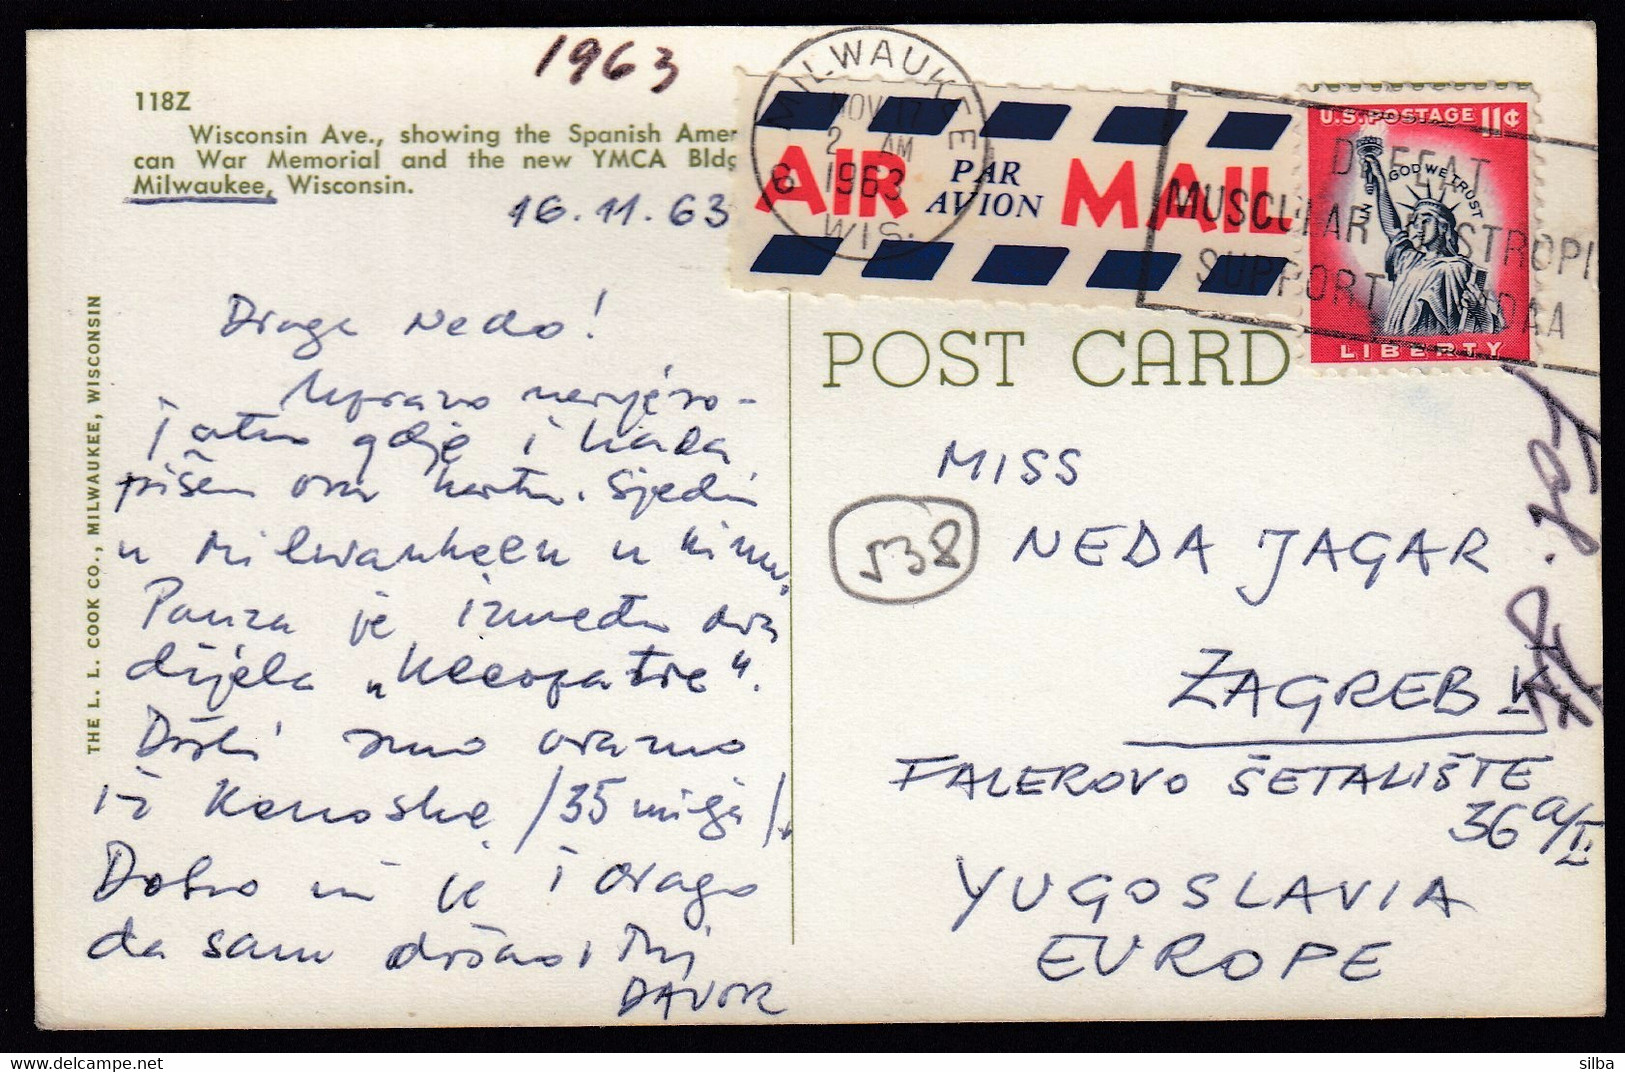 1963
118Z
Wisconsin Ave., showing the Spanish Ameri
can War Memorial and the new YMCA Bldg
Milwaukee, Wisconsin.
16.11.63
THE L. L. COOK CO., MILWAUKEE, WISCONSIN
Draga Nedo!
Upravo nevjero-
jatno gdje i kada
pišem ovu kartu. Sjedim
u Milwaukeeu u "kinu"
Pauza je između dva
dijela „Kleopatre".
Došli smo ovamo
iz Kenoshe /35 milja/.
Dobro mi je i drago
da sam došao, Tvoj
DAVOR
MILWAUKEE
NOV 17
2 AM
1963
WIS.
AIR PAR AVION MAIL
DEFEAT
MUSCULAR DYSTROPH
SUPPORT MDAA
U.S. POSTAGE 11¢
IN GOD WE TRUST
LIBERTY
POST CARD
MISS
538
NEDA JAGAR
ZAGREB V
FALEROVO ŠETALIŠTE
36a/II
YUGOSLAVIA
EUROPE
silba